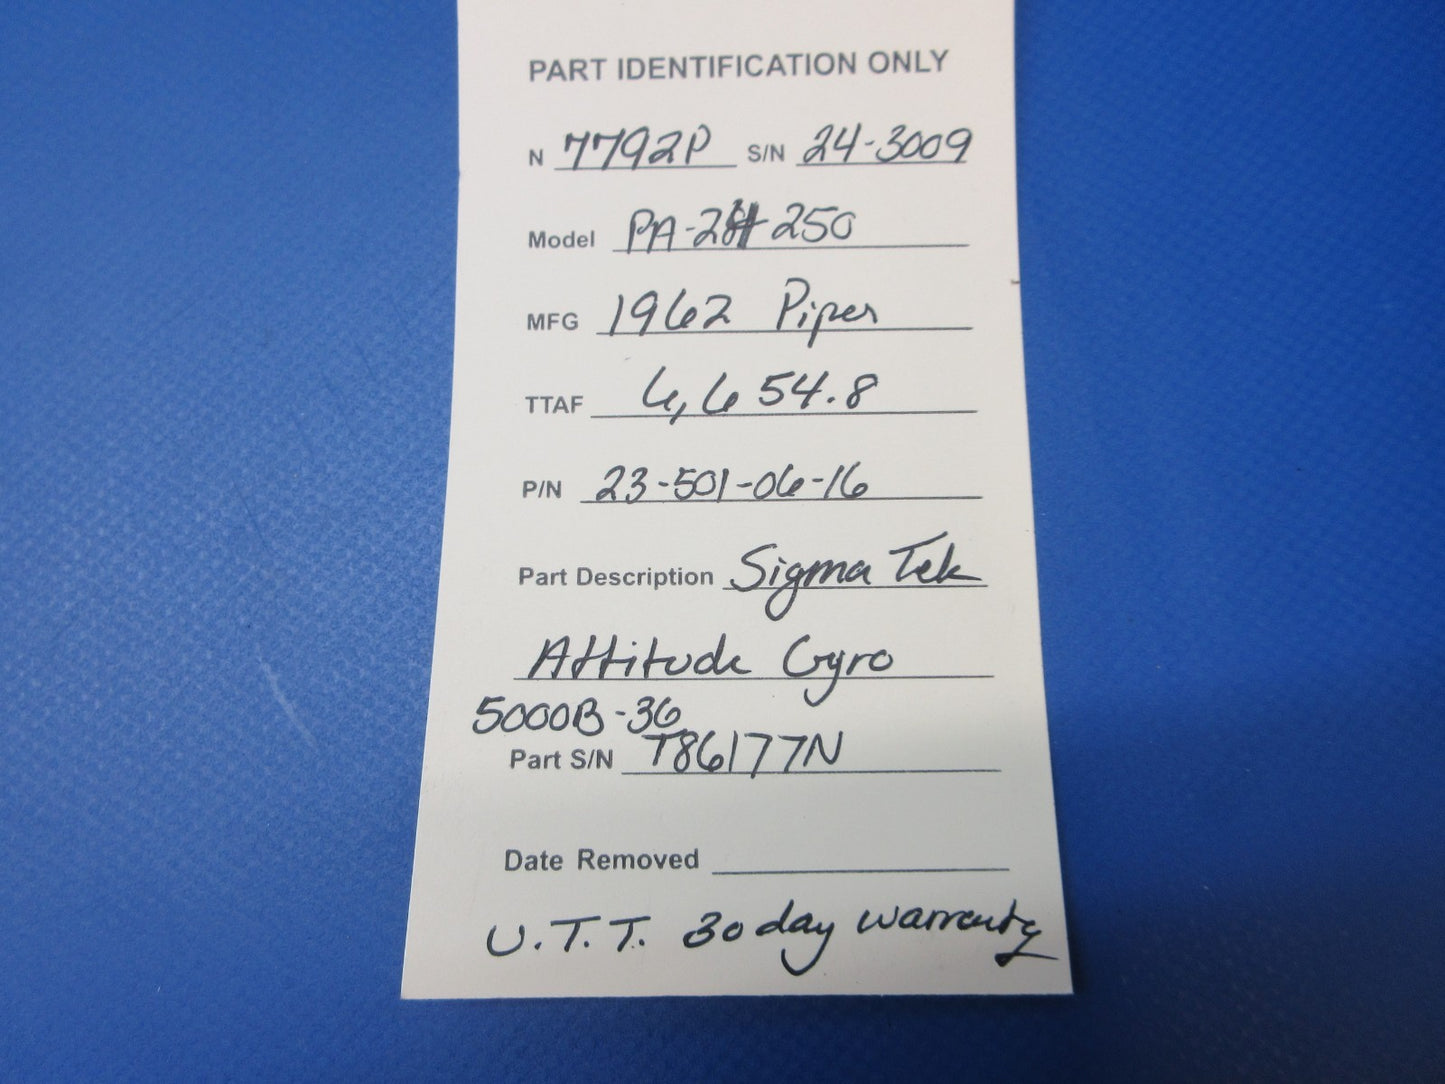 PART IDENTIFICATION ONLY
N 7792P S/N 24-3009
Model PA-24-250
MFG 1962 Piper
TTAF 6,654.8
P/N 23-501-06-16
Part Description Sigma Tek
Attitude Gyro
5000B-36
Part S/N T86177N
Date Removed
U.T.T. 30 day warranty